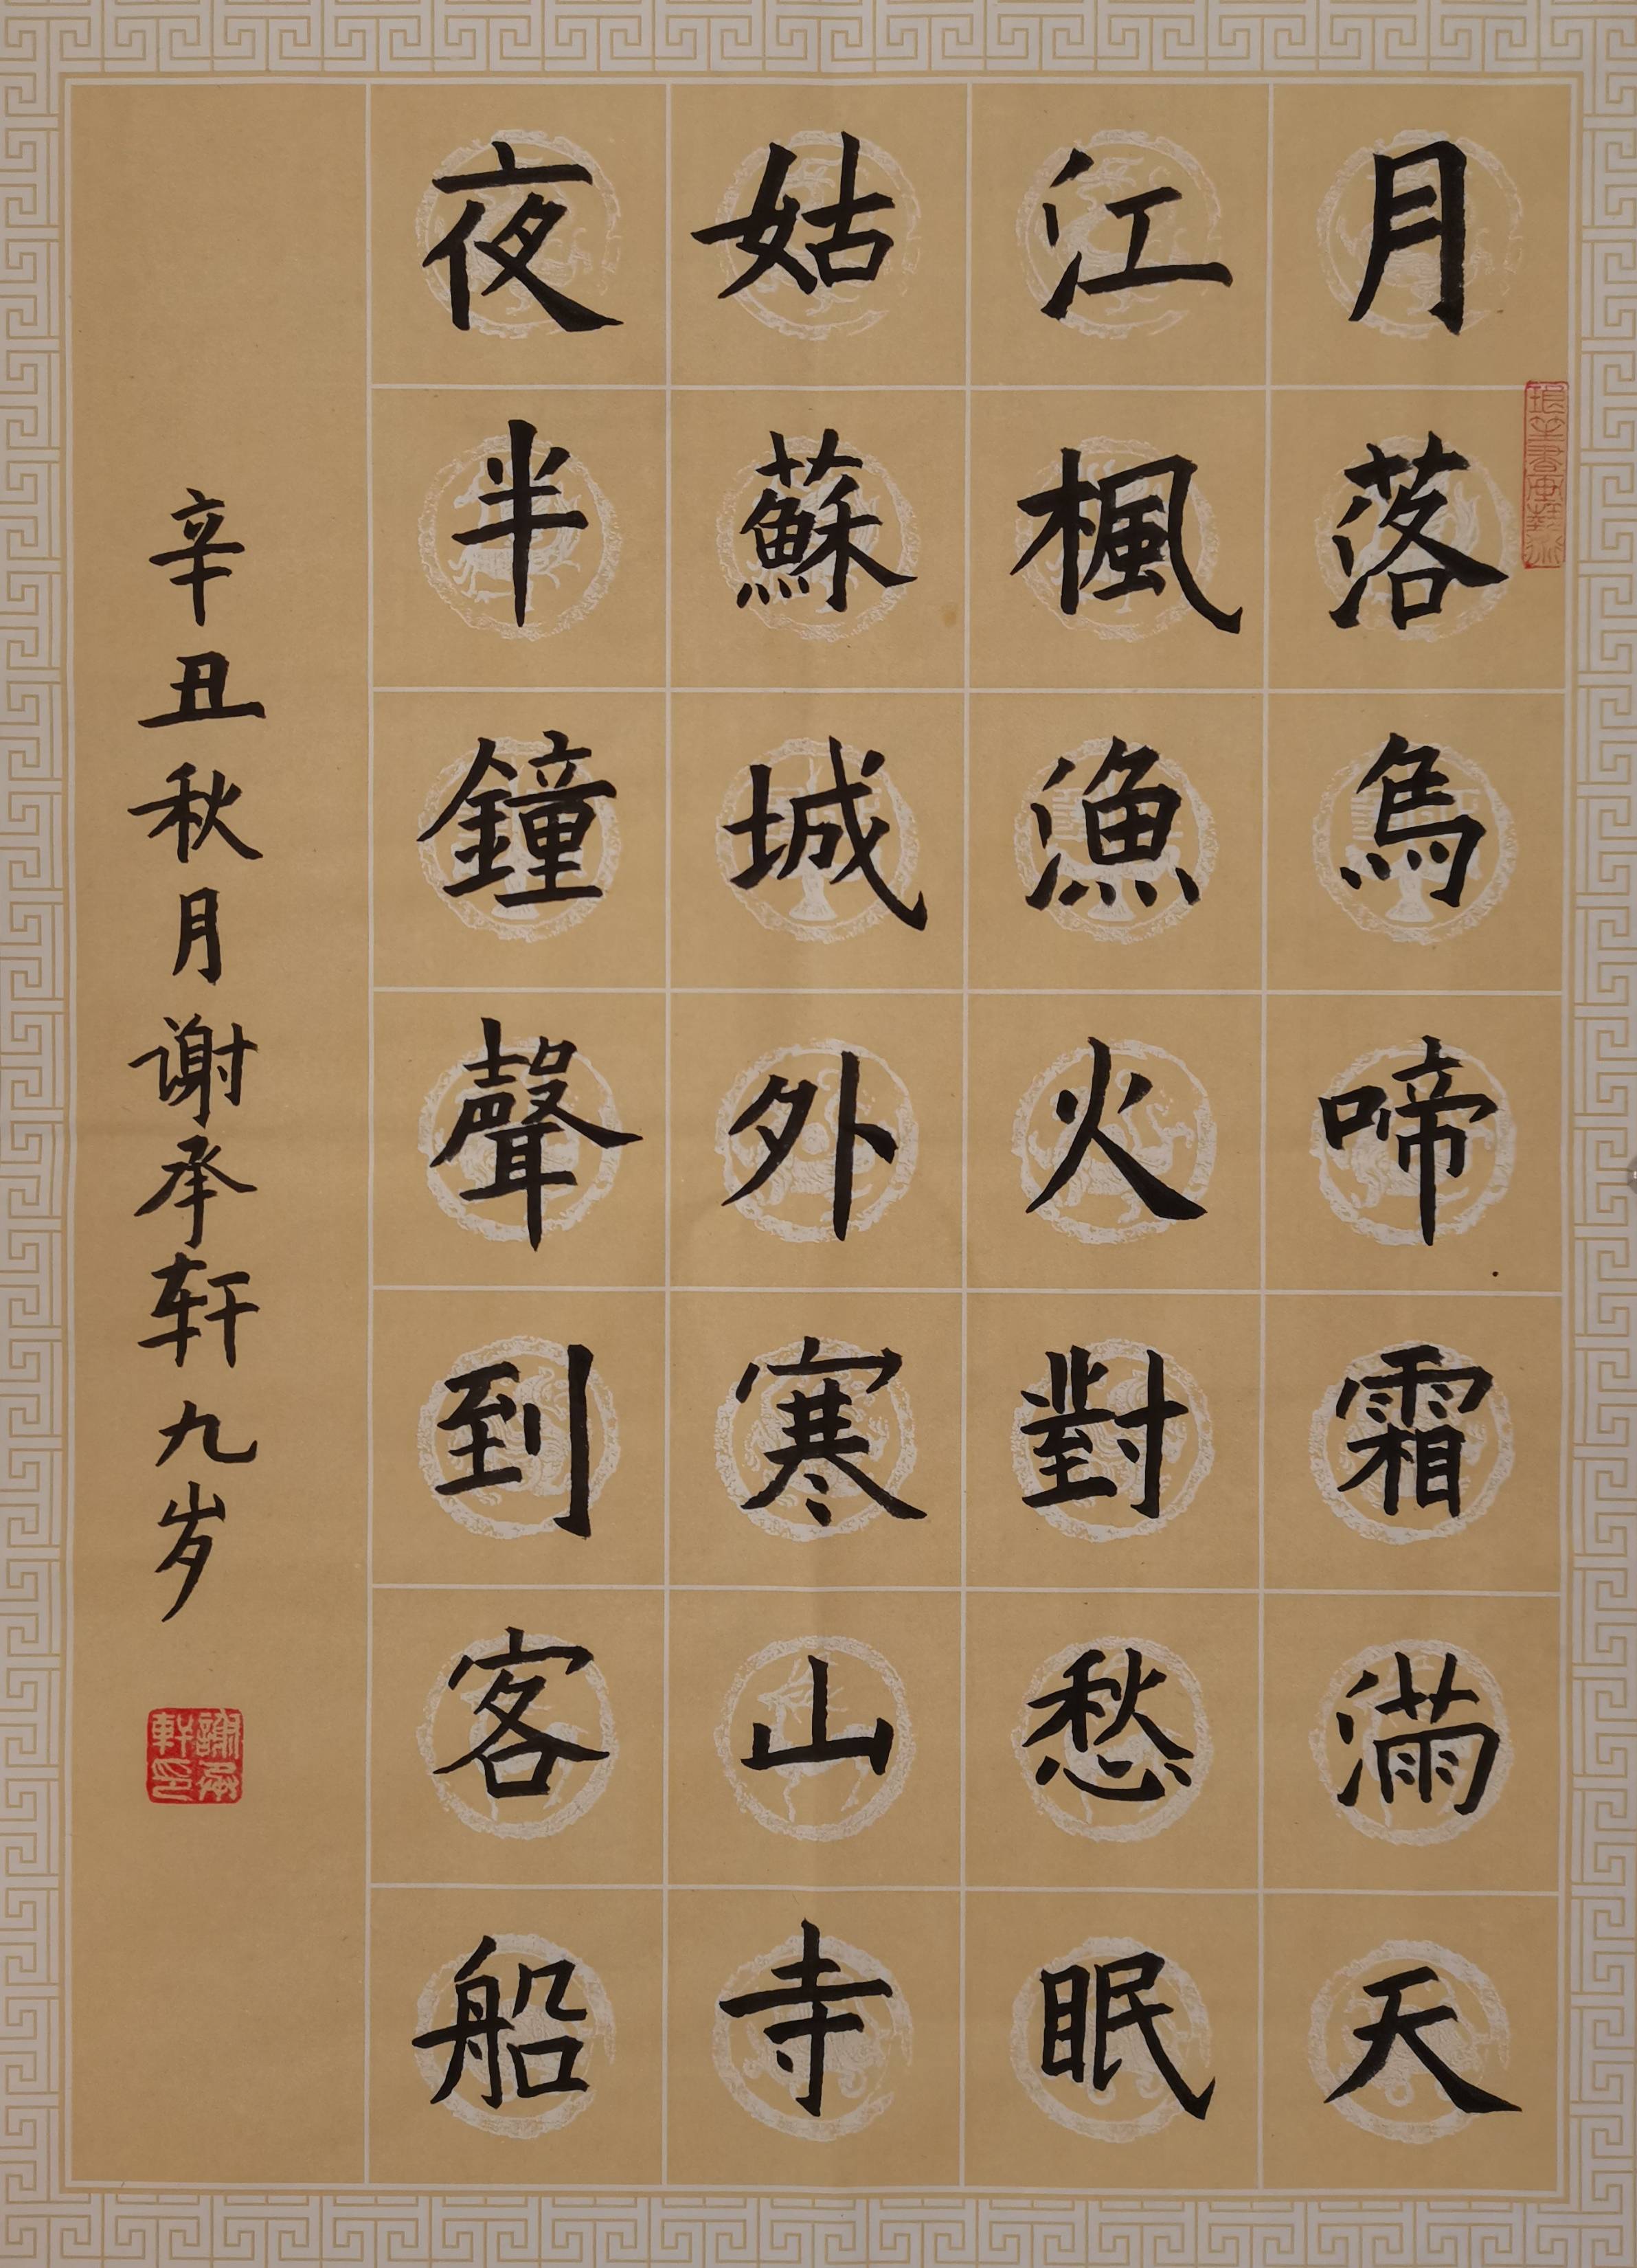 月落烏啼霜滿天
江楓漁火對愁眠
姑蘇城外寒山寺
夜半鐘聲到客船
辛丑秋月谢承轩九岁
謝承軒印